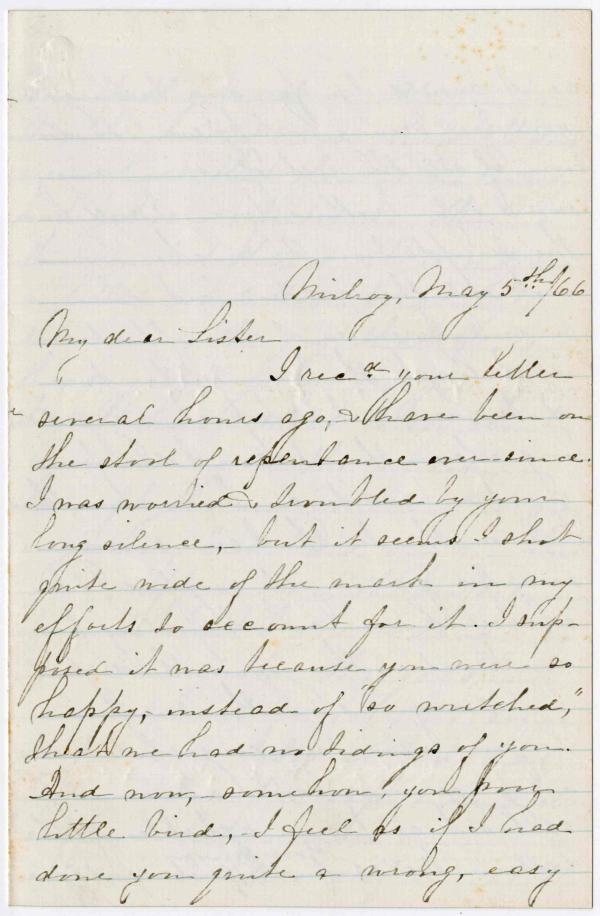 Milroy, May 5th/66
My dear Sister
I recd your letter
several hours ago, & have been on
the stool of repentance ever since.
I was worried & troubled by your
long silence, - but it seems I shot
quite wide of the mark in my
efforts to account for it. I sup-
posed it was because you were so
happy, instead of "so wretched,"
that we had no tidings of you.
And now, somehow, you poor
little bird, I feel as if I had
done you quite a wrong, easy